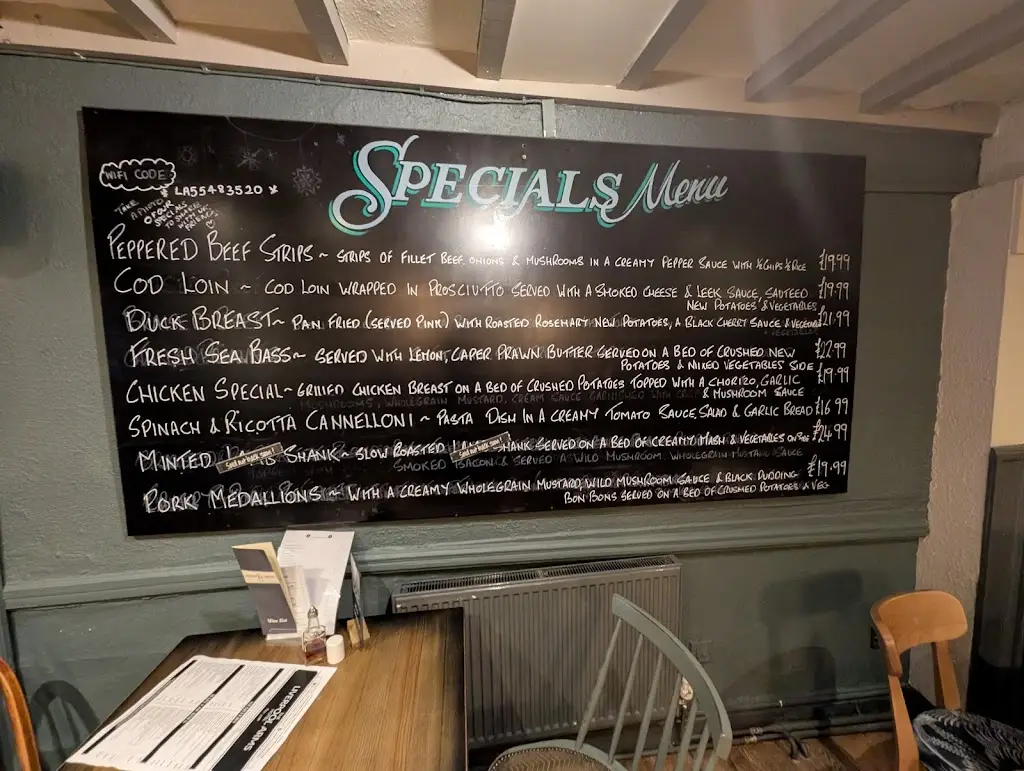 SPECIALS Menu
WIFI CODE?
LA55483520
TAKE
A PHOTO
OF OUR
SPECIALS
TO SHARE
WITH
FRIENDS!
PEPPERED BEEF STRIPS ~ STRIPS OF FILLET BEEF, ONIONS & MUSHROOMS IN A CREAMY PEPPER SAUCE WITH ½ CHIPS ½ RICE £19.99
COD LOIN ~ COD LOIN WRAPPED IN PROSCIUTTO SERVED WITH A SMOKED CHEESE & LEEK SAUCE, SAUTEED £19.99
NEW POTATOES & VEGETABLES
DUCK BREAST ~ PAN FRIED (SERVED PINK) WITH ROASTED ROSEMARY NEW POTATOES, A BLACK CHERRY SAUCE & £21.99
FRESH SEA BASS ~ SERVED WITH LEMON, CAPER PRAWN BUTTER SERVED ON A BED OF CRUSHED NEW £22.99
POTATOES & MIXED VEGETABLES SIDE
CHICKEN SPECIAL ~ GRILLED CHICKEN BREAST ON A BED OF CRUSHED POTATOES TOPPED WITH A CHORIZO, GARLIC £19.99
& MUSHROOM SAUCE
SPINACH & RICOTTA CANNELLONI ~ PASTA DISH IN A CREAMY TOMATO SAUCE, SALAD & GARLIC BREAD £16.99
MINTED SHANK ~ SLOW ROASTED SHANK SERVED ON A BED OF CREAMY MASH & VEGETABLES £24.99
Sold out back soon!
Sold out back soon!
PORK MEDALLIONS ~ WITH A CREAMY WHOLEGRAIN MUSTARD, WILD MUSHROOM SAUCE & BLACK PUDDING £19.99
BON BONS SERVED ON A BED OF CRUSHED POTATOES & VEG
Wine List
LIVERPOOL ARMS